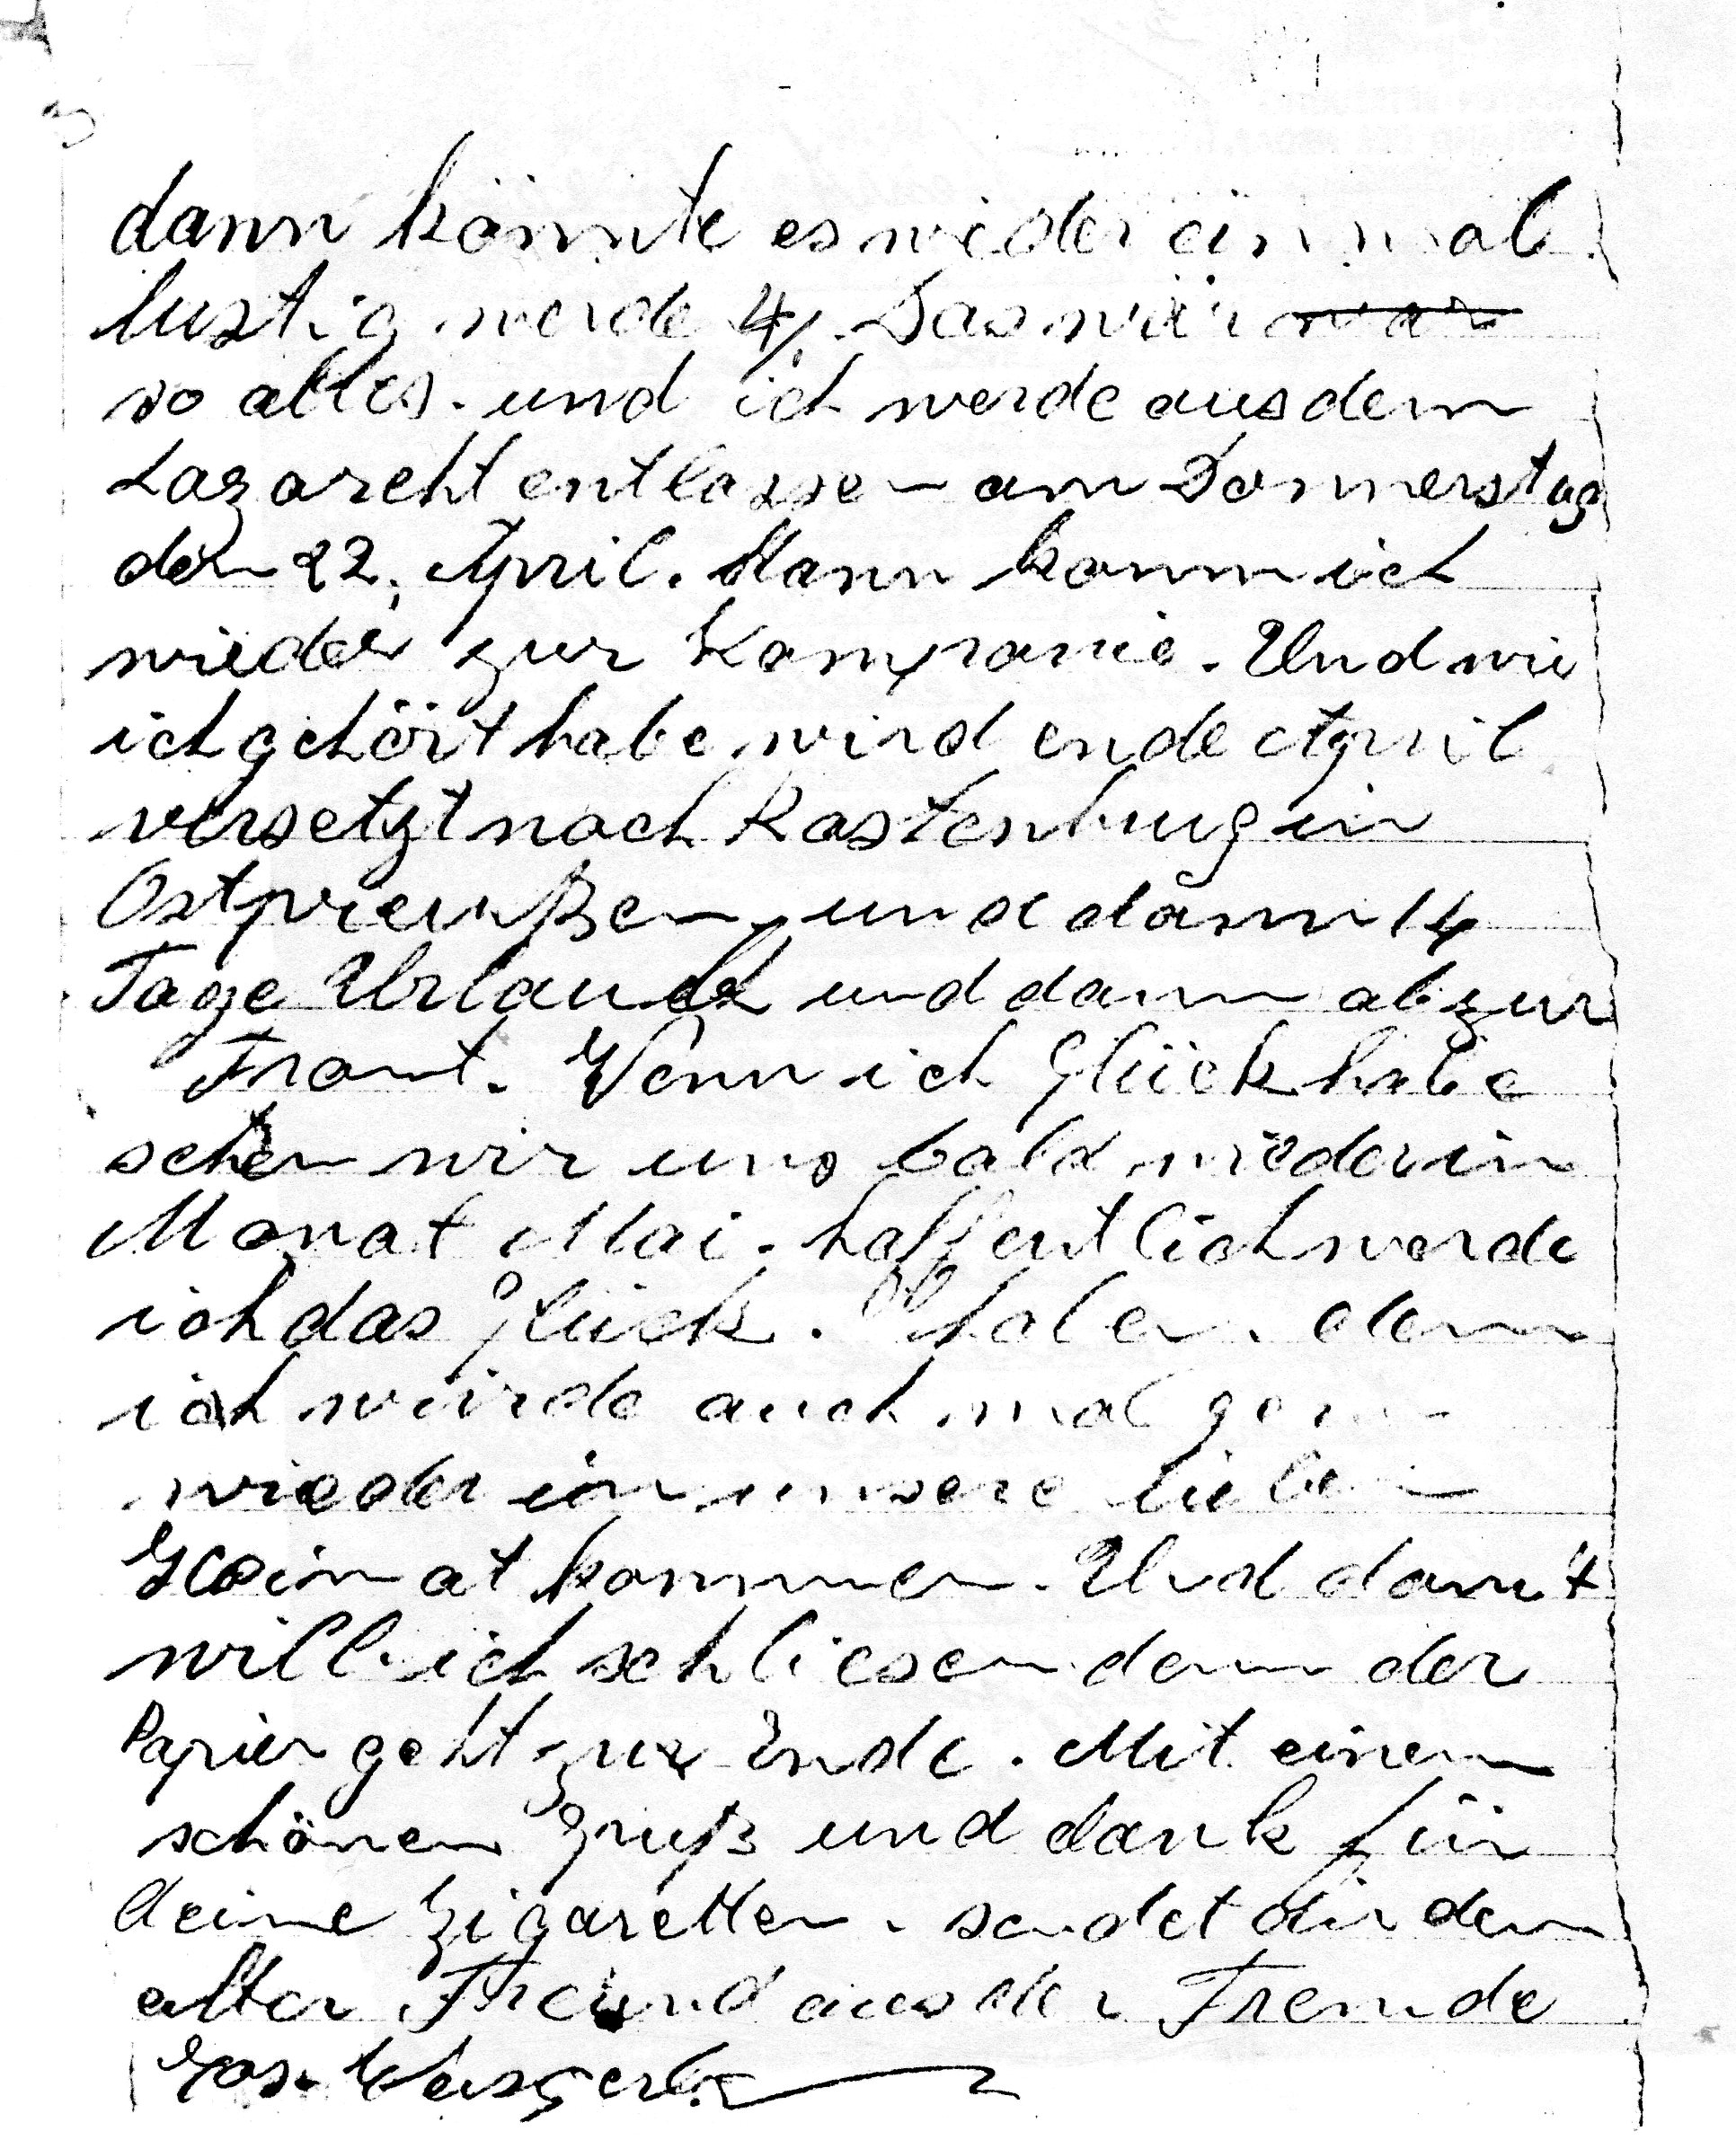 3
dann könnte es wieder einmal
lustig werde 4/. Das wär war
so alles. und ich werde aus dem
Lazareht entlassen am Donnerstag
den 22. April. Dann komm ich
wieder zur Kompanie. Und wie
ich gehört habe wird ende April
versetzt nach Rastenburg in
Ostpreußen und dann 14
Tage Urlaub und dann ab zur
Front. Wenn ich Glück habe
sehen wir uns bald wieder in
Monat Mai. hoffentlich werde
ich das Glück. haben. denn
ich würde auch mal gern
wieder in unsere lieben
Heimat kommen. Und damit
will ich schliesen denn der
Papier geht zur Ende. Mit einem
schönen Gruß und dank für
deine Zigaretten. sendet dir dein
alter Freund aus der Fremde